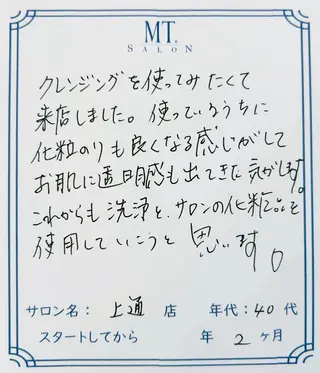 MT.
SALON
クレンジングを使ってみたくて
来店しました。使っているうちに
化粧のりも良くなる感じがして
お肌に透明感も出てきた気がします。
これからも洗浄と、サロンの化粧品を
使用していこうと思います。
サロン名: 上通 店 年代: 40 代
スタートしてから 年 2 ヶ月